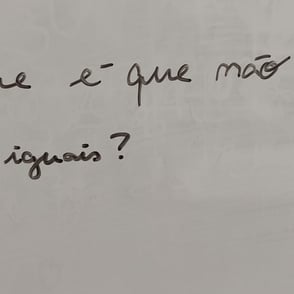 ue é que não
iguais?